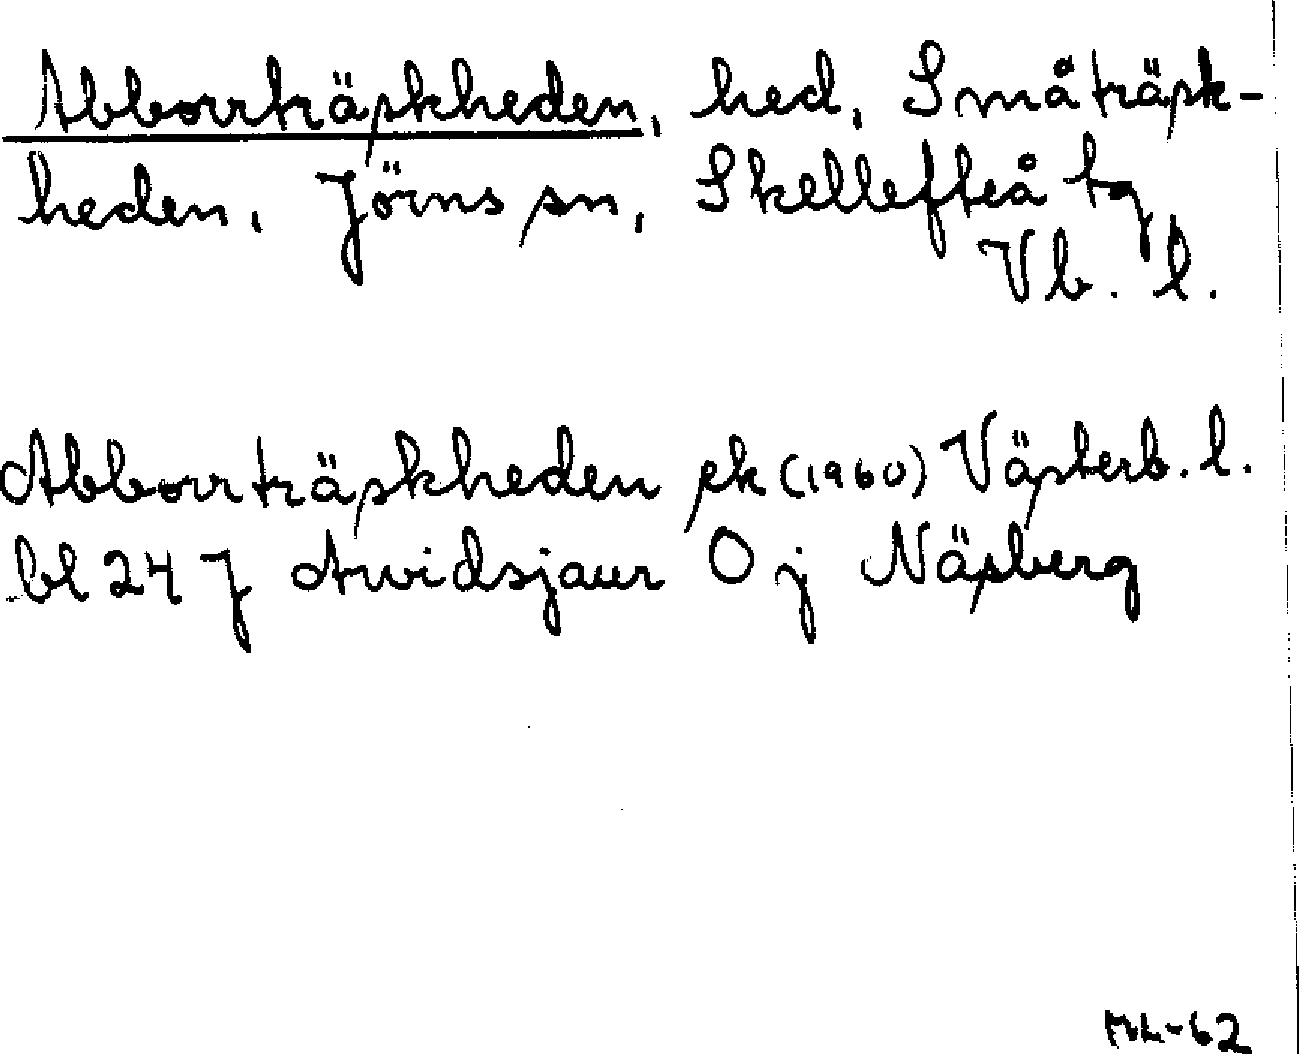 Abborrträskheden, hed, Småträsk-
heden, Jörns sn, Skellefteå tg
Vb. l.
Abborrträskheden ek (1960) Västerb. l.
bl 24 J Arvidsjaur O j Näsberg
ML-62